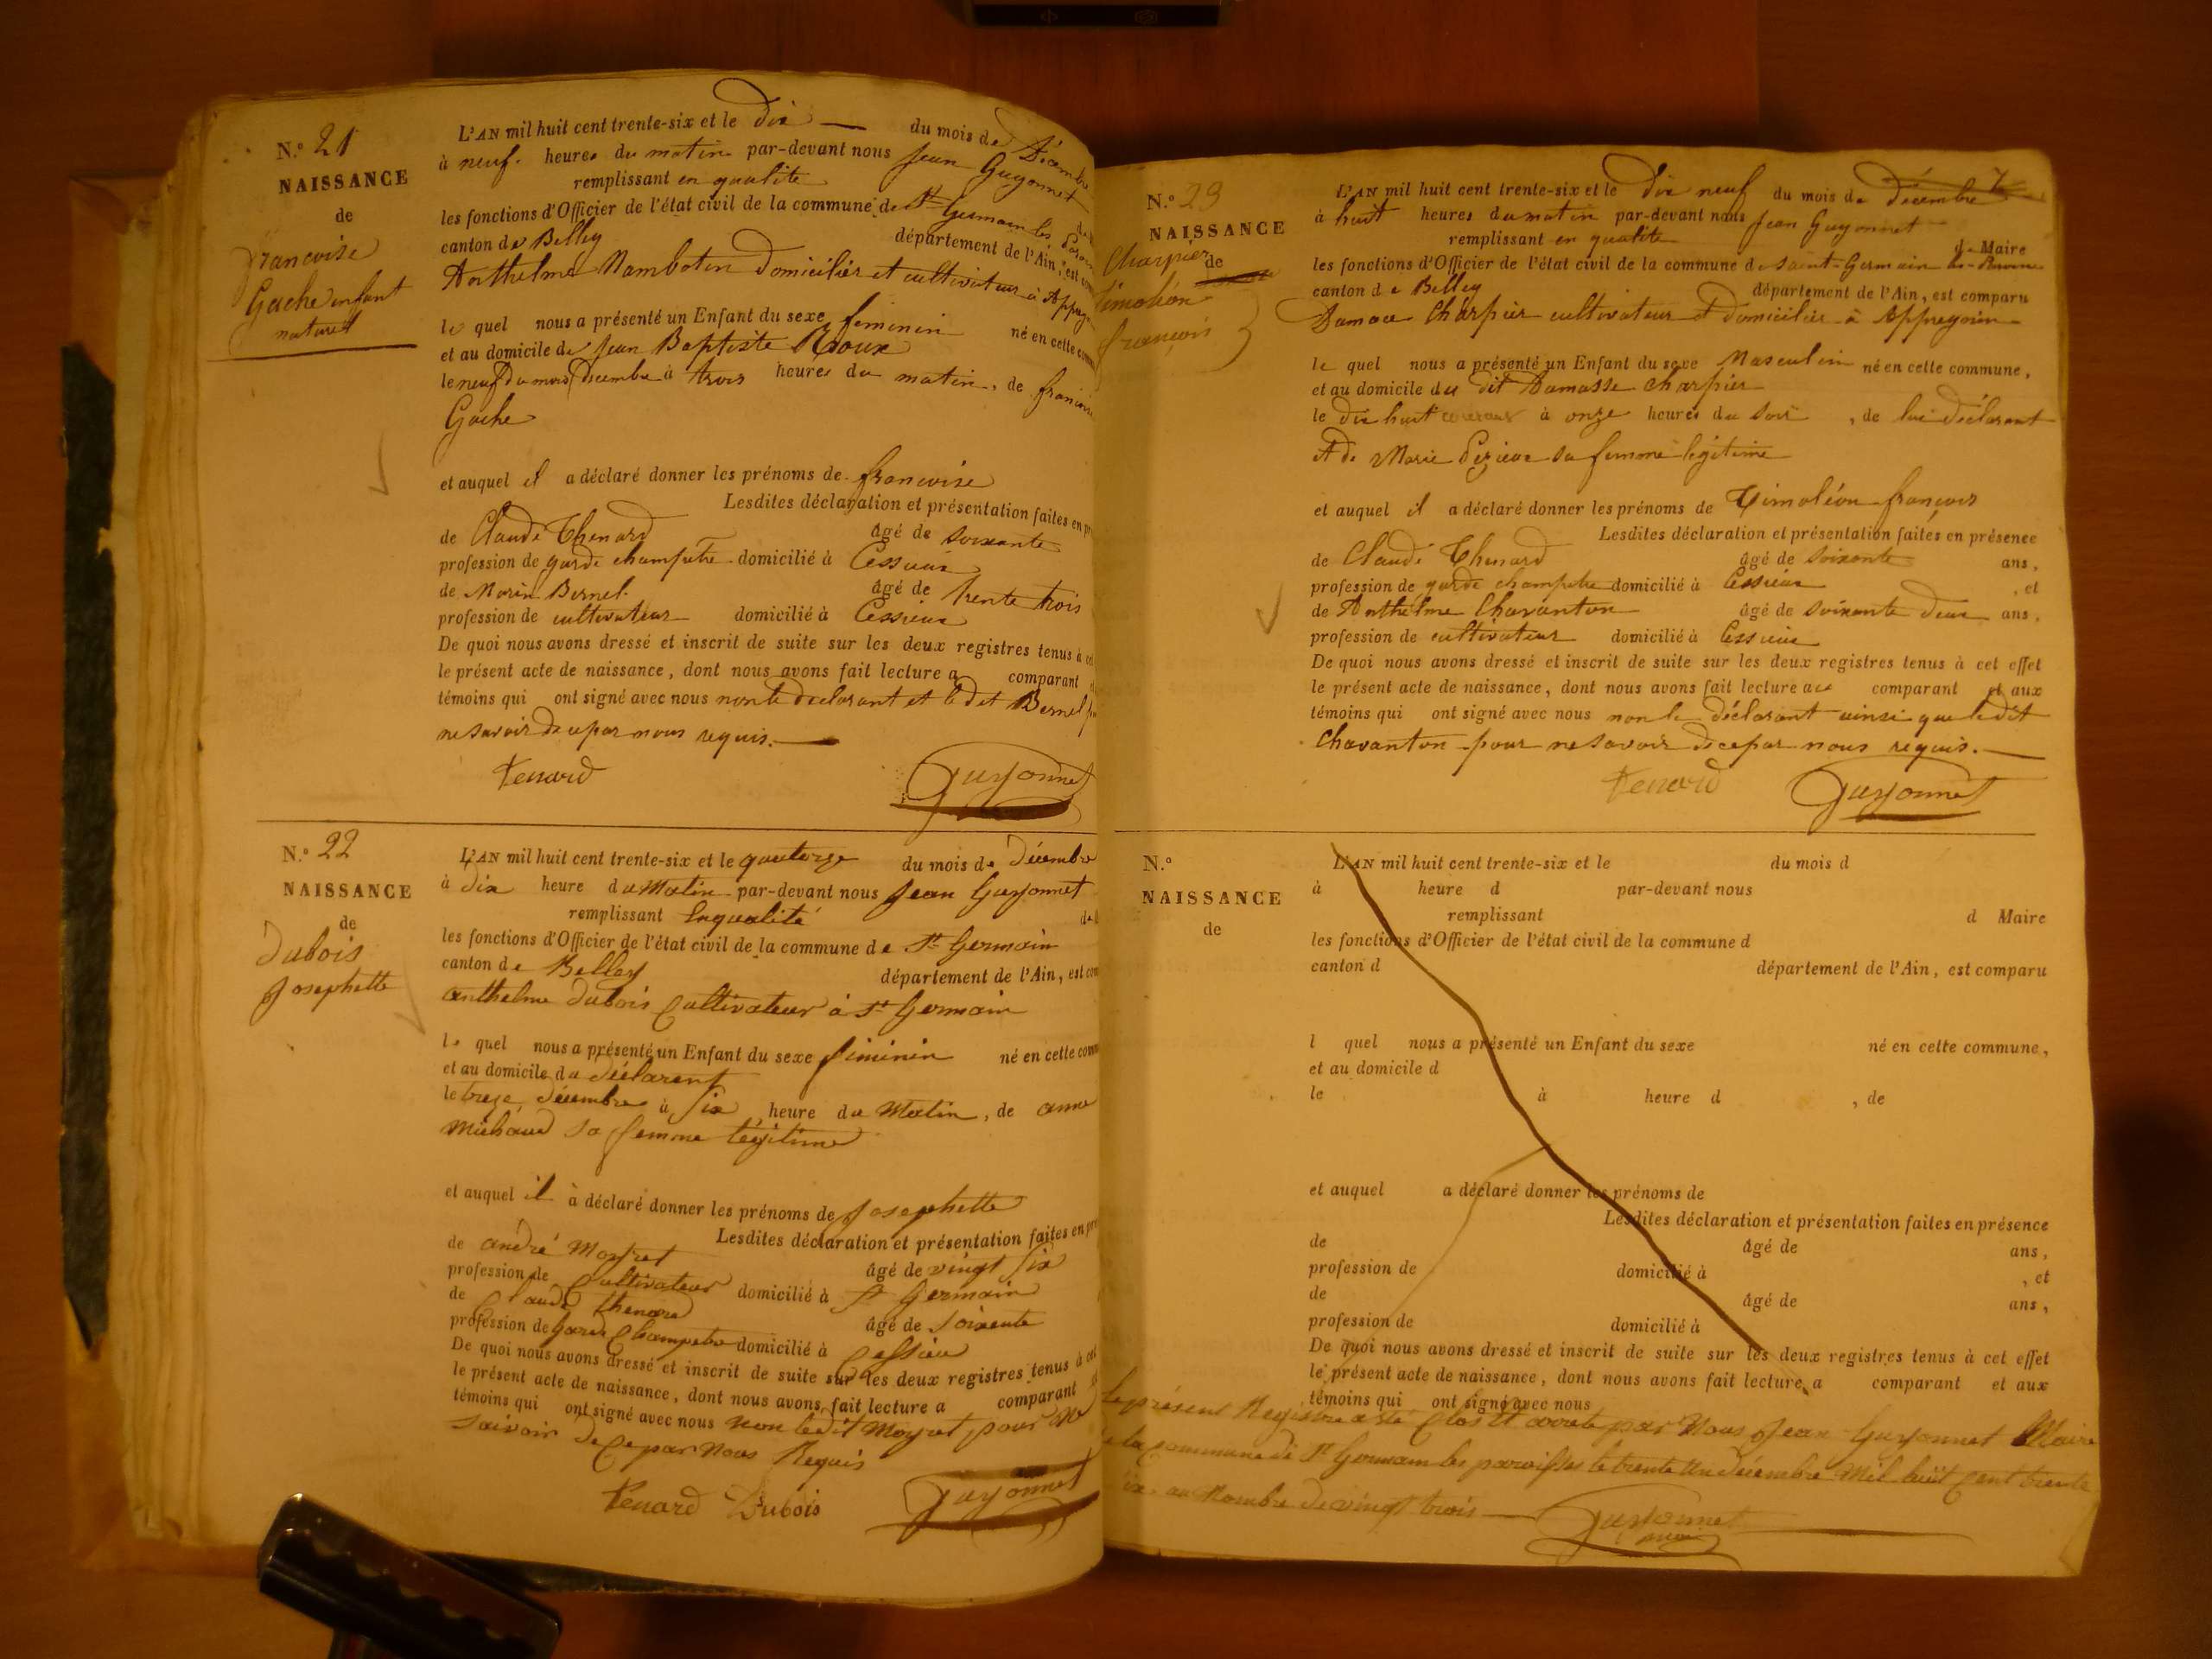 N.º 21
NAISSANCE
de
francoise
Gache enfant
naturel
L'AN mil huit cent trente-six et le dix du mois de Décembre
à neuf heures du matin par-devant nous Jean Guyonnet
remplissant en qualité de
les fonctions d'Officier de l'état civil de la commune de St Germain les
canton de Belley département de l'Ain, est
Anthelme Mambotin domicilier et cultivateur à
le quel nous a présenté un Enfant du sexe feminin né en cette
et au domicile de Jean Baptiste Roux
le neuf du mois Decembre à trois heures du matin, de
Gache
et auquel il a déclaré donner les prénoms de francoise
Lesdites déclaration et présentation faites en
de Claude Thenard âgé de soixante
profession de garde champetre domicilié à Cessieux
de Morin Bernel âgé de trente trois
profession de cultivateur domicilié à Cessieux
De quoi nous avons dressé et inscrit de suite sur les deux registres tenus à
le présent acte de naissance, dont nous avons fait lecture a comparant
témoins qui ont signé avec nous non le declarant et le dit Bernel
ne savoir de ce par nous requis.
Tenard Guyonnet
N.º 22
NAISSANCE
de
Dubois
Josephette
L'AN mil huit cent trente-six et le quatorze du mois de Décembre
à dix heure du Matin par-devant nous Jean Guyonnet
remplissant En qualité
les fonctions d'Officier de l'état civil de la commune de St Germain
canton de Belley département de l'Ain, est
anthelme Dubois Cultivateur à St Germain
le quel nous a présenté un Enfant du sexe féminin né en cette
et au domicile du déclarent
le treze décembre à six heure du Matin, de anne
Michaud sa femme légitime
et auquel il à déclaré donner les prénoms de Josephette
Lesdites déclaration et présentation faites en
de andré Moyret âgé de vingt six
profession de Cultivateur domicilié à St Germain
de Claude thenard âgé de soixente
profession de Garde Champetre domicilié à Cessieu
De quoi nous avons dressé et inscrit de suite sur les deux registres tenus à cet
le présent acte de naissance, dont nous avons fait lecture a comparant
témoins qui ont signé avec nous non ledit Moyret pour ne
saivoir De Ce par Nous Requis
Tenard Dubois Guyonnet
N.º 23
NAISSANCE
de
Charpier
timoléon
françois
L'AN mil huit cent trente-six et le dix neuf du mois de décembre
à huit heures du matin par-devant nous Jean Guyonnet
remplissant en qualite de Maire
les fonctions d'Officier de l'état civil de la commune de saint-Germain les
canton de Belley département de l'Ain, est comparu
Damace Charpier cultivateur et domicilier à Appregnin
le quel nous a présenté un Enfant du sexe Masculin né en cette commune,
et au domicile du dit Damasse Charpier
le dix huit courant à onze heures du soir, de lui déclarant
et de Marie Pezieux sa femme légitime
et auquel il a déclaré donner les prénoms de Timoléon françois
Lesdites déclaration et présentation faites en présence
de Claude Thenard âgé de soixante ans,
profession de garde champetre domicilié à Cessieux, et
de Anthelme Chavanton âgé de soixante deux ans,
profession de cultivateur domicilié à Cessieux
De quoi nous avons dressé et inscrit de suite sur les deux registres tenus à cet effet
le présent acte de naissance, dont nous avons fait lecture aux comparant et aux
témoins qui ont signé avec nous non le déclarant ainsi que ledit
Chavanton pour ne savoir de ce par nous requis.
Tenard Guyonnet
N.º
NAISSANCE
de
L'AN mil huit cent trente-six et le du mois d
à heure d par-devant nous
remplissant d Maire
les fonctions d'Officier de l'état civil de la commune d
canton d département de l'Ain, est comparu
l quel nous a présenté un Enfant du sexe né en cette commune,
et au domicile d
le à heure d , de
et auquel a déclaré donner les prénoms de
Lesdites déclaration et présentation faites en présence
de âgé de ans,
profession de domicilié à , et
de âgé de ans,
profession de domicilié à
De quoi nous avons dressé et inscrit de suite sur les deux registres tenus à cet effet
le présent acte de naissance, dont nous avons fait lecture a comparant et aux
témoins qui ont signé avec nous
le présent Registre a été Clos et arreté par Nous Jean Guyonnet Maire
de la Commune de St Germain les paroisses le trente un décembre Mil huit Cent trente
six au Nombre de vingt trois
Guyonnet